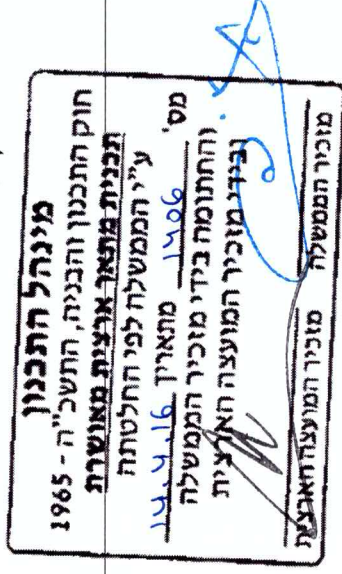 מינהל התכנון
חוק התכנון והבניה, התשכ"ה - 1965
תכנית מתאר ארצית מאושרת
ע"י הממשלה לפי החלטתה
מס' 1406 מתאריך
והחתומה בידי מזכיר הממשלה
ובידי מזכיר המועצה הארצית
מזכיר המועצה הארצית מזכיר הממשלה